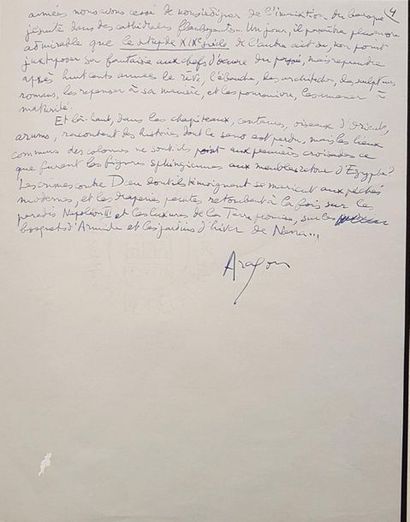 4
années nous avons cessé de nous indigner de l'invasion du baroque
jésuite dans des cathédrales flamboyantes. Un jour, il paraîtra plus encore
admirable que le style XIXe siècle de Cintra ait su, non point
juxtaposer sa fantaisie aux chefs-d'œuvre du passé, mais reprendre
après huit cents années le rêve, l'ébauche, des architectes, des sculpteurs
romans, les repenser à sa manière, et les poursuivre, les mener à
maturité.
Et là-haut, dans les chapiteaux, centaures, oiseaux d'Orient,
arums, racontent des histoires dont le sens est perdu, mais les lieux
communs des colonnes ne sont-ils point aux premières croisades ce
que furent les figures sphingiennes aux meubles retour d'Egypte ?
Les crimes contre Dieu dont ils témoignent se marient aux péchés
modernes, et les draperies peintes retombent à la fois sur les
paradis Napoléon III et les luxures de la Terre promise, sur les
bosquets d'Armide et les jardins d'hiver de Nana...
Aragon